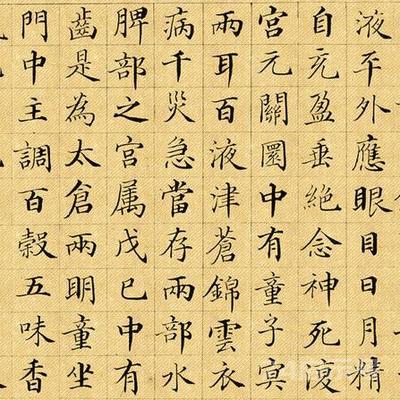 液平外應眼目日月精
自充盈垂絕念神死復
宮元關圓中有童子冥
兩耳百液津蒼錦雲衣
病千災急當存兩部水
脾部之宮属戊己中有
齒是為太倉兩明童坐
門中主調百穀五味香